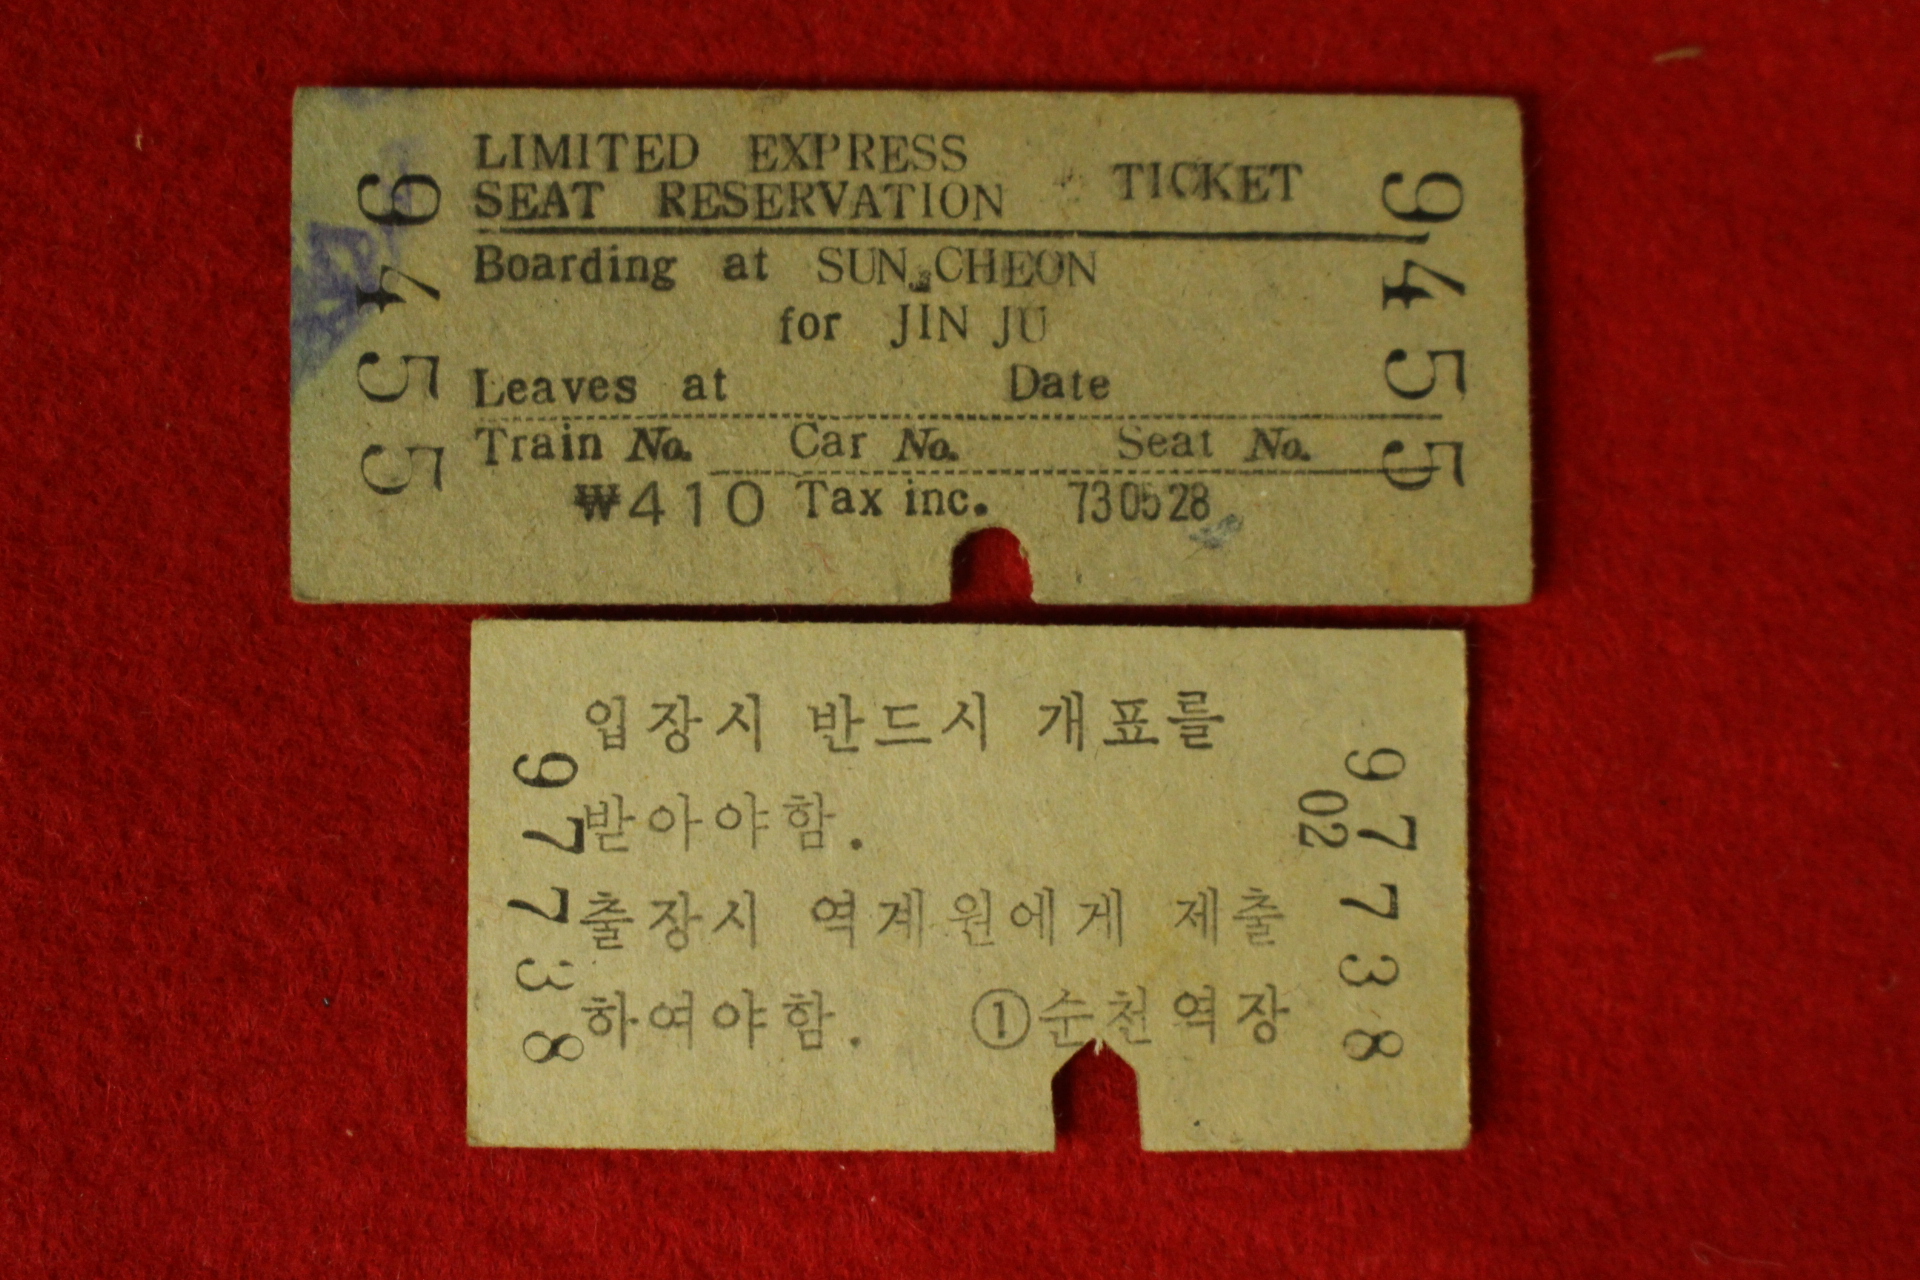 LIMITED EXPRESS
SEAT RESERVATION TICKET
Boarding at SUN CHEON
for JIN JU
Leaves at Date
Train No. Car No. Seat No.
₩410 Tax inc. 730528
9455
9455
입장시 반드시 개표를
받아야함.
출장시 역계원에게 제출
하여야함. ①순천역장
97738
97738
02